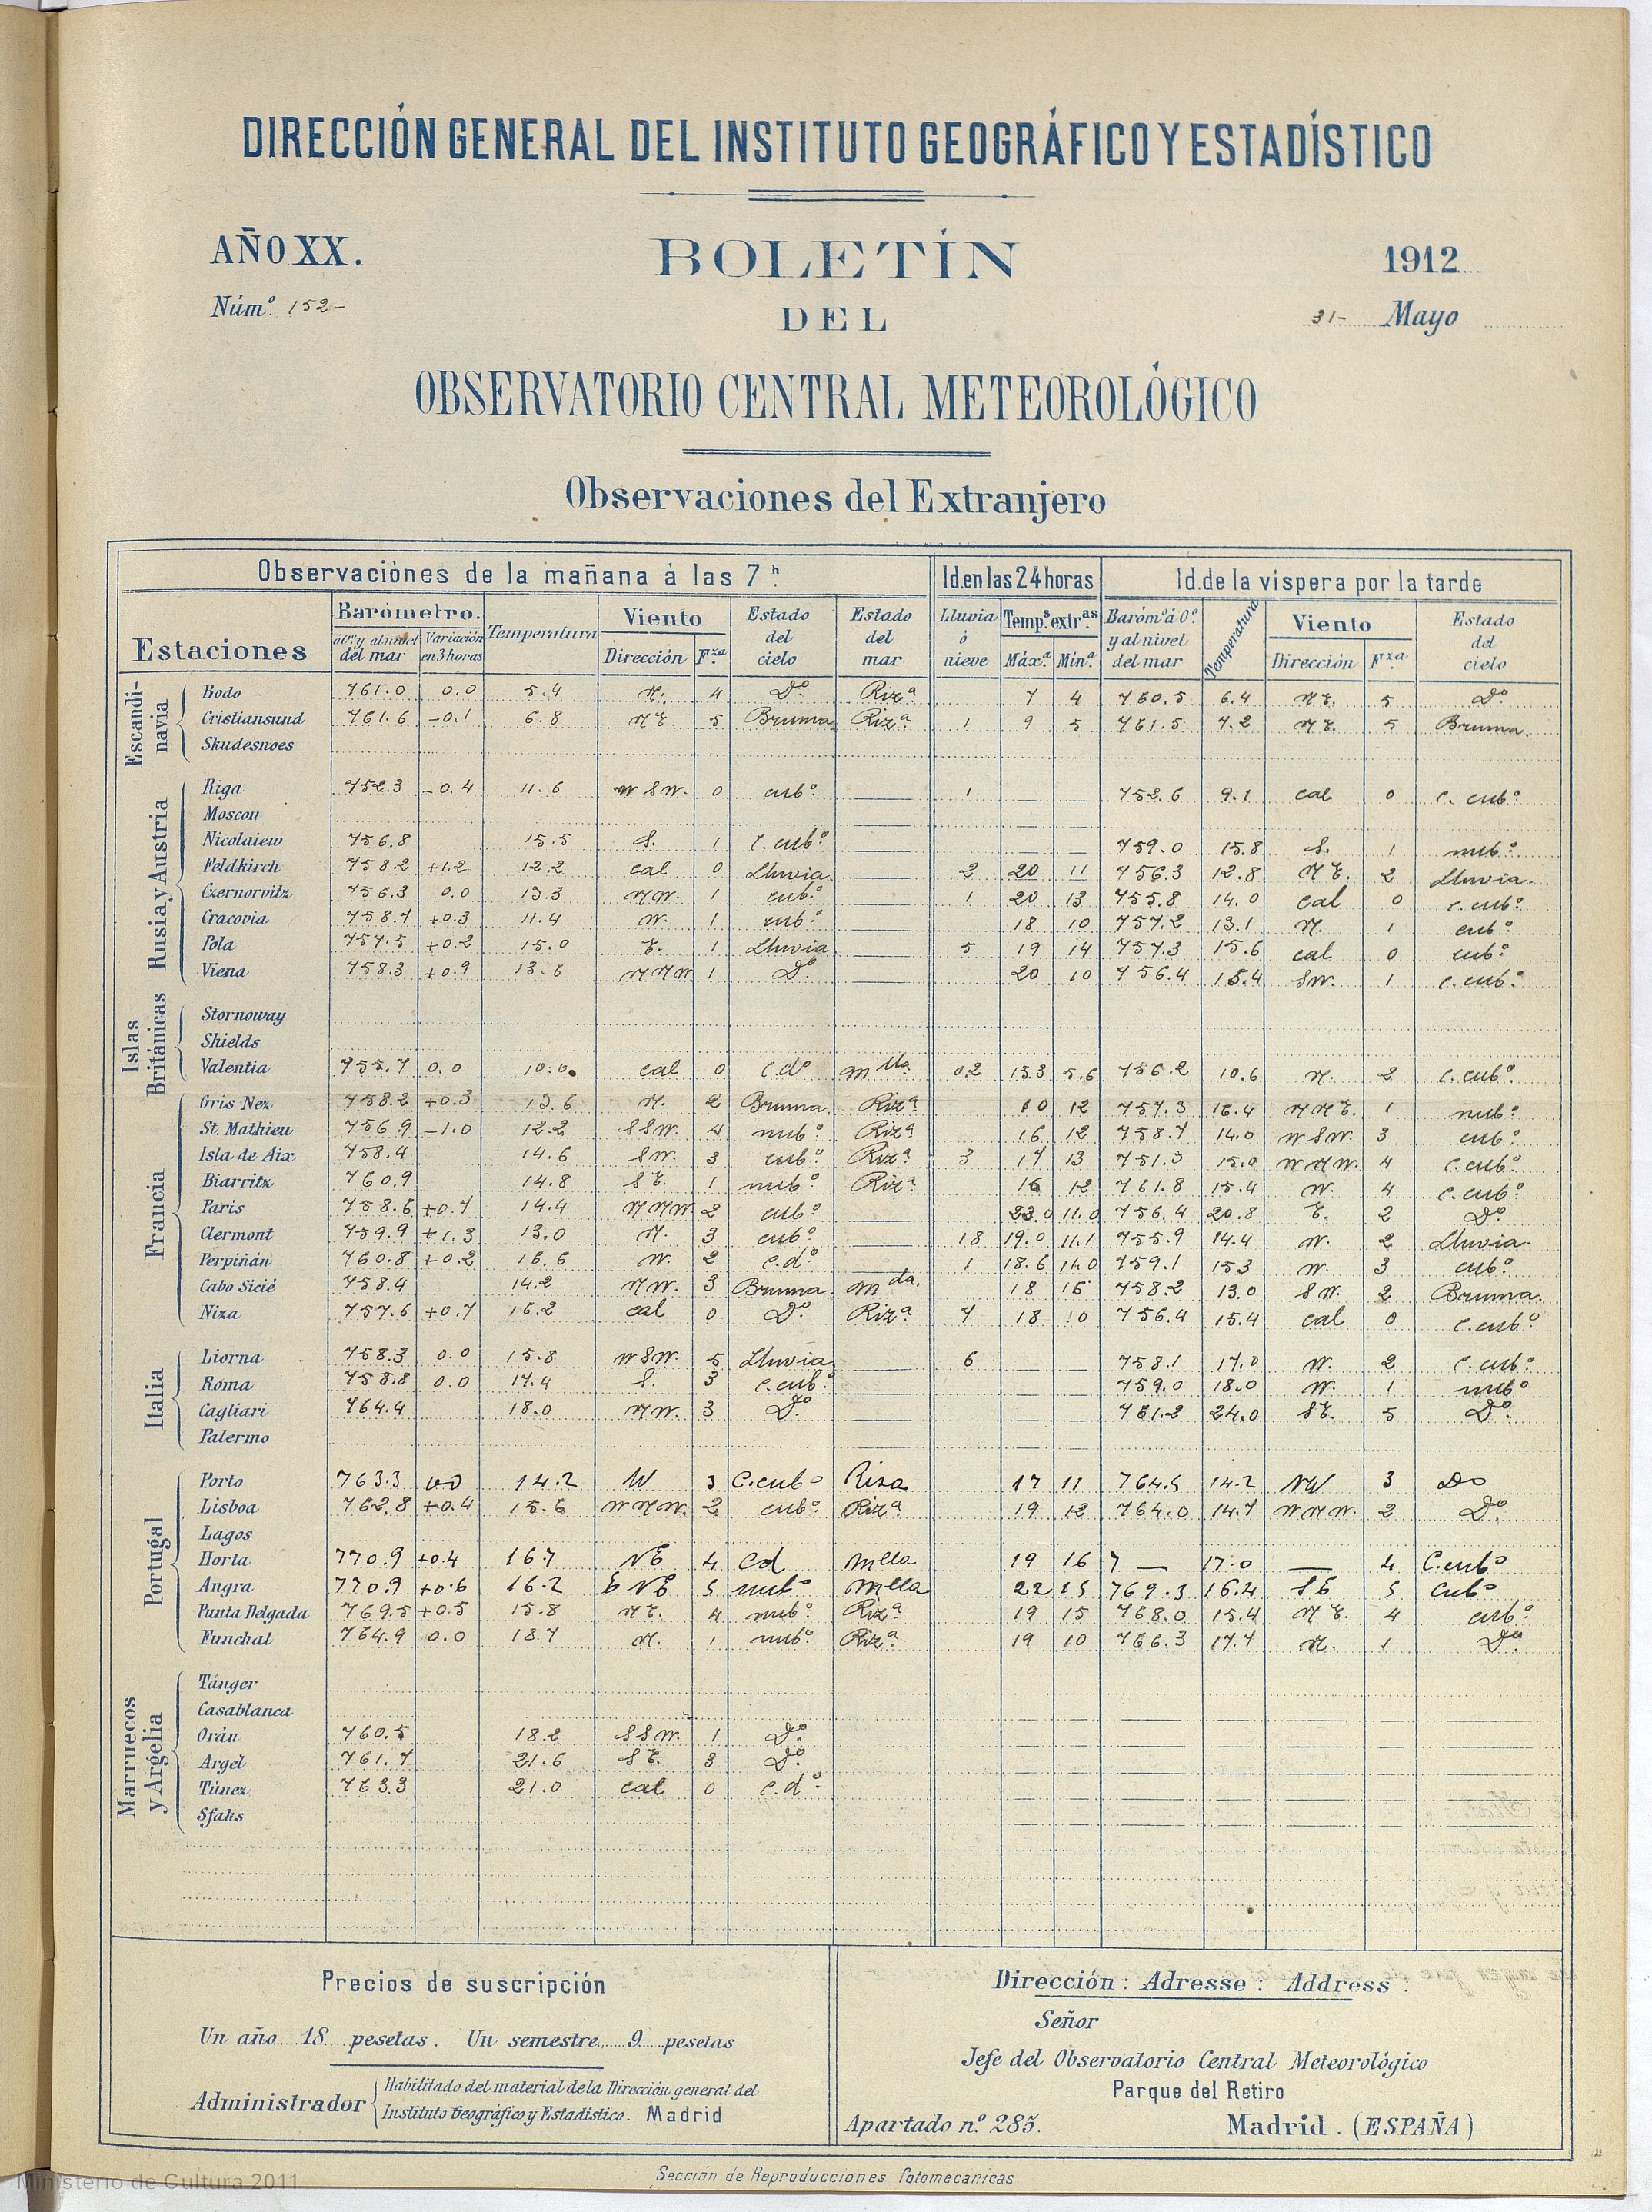 DIRECCIÓN GENERAL DEL INSTITUTO GEOGRÁFICO Y ESTADÍSTICO
AÑO XX. BOLETÍN 1912
Núm.º 152- DEL 31- Mayo
OBSERVATORIO CENTRAL METEOROLÓGICO
Observaciones del Extranjero
Observaciónes de la mañana á las 7 h. Id. en las 24 horas Id. de la vispera por la tarde
Estaciones Barómetro. á 0º y al nivel del mar Variación en 3 horas Temperatura Viento Dirección F.za Estado del cielo Estado del mar Lluvia ó nieve Temp.s extr.as Máx.a Mín.a Baróm.º á 0º y al nivel del mar Temperatura Viento Dirección F.za Estado del cielo
Escandinavia
Bodo 761.0 0.0 5.4 N. 4 Dº Rizª 7 4 760.5 6.4 NE. 5 Dº
Cristiansund 761.6 -0.1 6.8 NE. 5 Bruma Rizª 1 9 5 761.5 7.2 NE. 5 Bruma.
Skudesnoes
Rusia y Austria
Riga 752.3 -0.4 11.6 WSW. 0 cubº 1 752.6 9.1 cal 0 C. cubº
Moscou
Nicolaiew 756.8 15.5 S. 1 C. cubº 759.0 15.8 S. 1 nubº
Feldkirch 758.2 +1.2 12.2 cal 0 Lluvia 2 20 11 756.3 12.8 NE. 2 Lluvia.
Czernorvitz 756.3 0.0 13.3 NW. 1 cubº 1 20 13 755.8 14.0 cal 0 C. cubº
Cracovia 758.7 +0.3 11.4 W. 1 cubº 18 10 757.2 13.1 N. 1 cubº
Pola 757.5 +0.2 15.0 E. 1 Lluvia 5 19 14 757.3 15.6 cal 0 cubº
Viena 758.3 +0.9 13.6 NNW 1 Dº 20 10 756.4 15.4 SW. 1 C. cubº
Islas Británicas
Stornoway
Shields
Valentia 755.7 0.0 10.0 cal 0 C.dº mlla 0.2 13.3 5.6 756.2 10.6 N. 2 C. cubº
Francia
Gris Nez 758.2 +0.3 13.6 N. 2 Bruma Rizª 12 757.3 16.4 NNE. 1 nubº
St. Mathieu 756.9 -1.0 12.2 SSW. 4 nubº Rizª 16 12 758.7 14.0 WSW. 3 cubº
Isla de Aix 758.4 14.6 SW. 3 cubº Rizª 3 17 13 15.0 WNW. 4 C.cubº
Biarritz 760.9 14.8 SE. 1 nubº Rizª 16 12 761.8 15.4 W. 4 C.cubº
Paris 758.6 +0.7 14.4 NNW 2 cubº 23.0 11.0 756.4 20.8 E. 2 Dº
Clermont 759.9 +1.3 13.0 N. 3 cubº 18 19.0 11.1 755.9 14.4 W. 2 Lluvia.
Perpiñán 760.8 +0.2 16.6 W. 2 C.dº 1 18.6 11.0 759.1 15.3 W. 3 cubº
Cabo Sicié 758.4 14.2 NW. 3 Bruma mda. 18 15 758.2 13.0 SW. 2 Bruma.
Niza 757.6 +0.7 16.2 cal 0 Dº Rizª 7 18 10 756.4 15.4 cal 0 C.cubº
Italia
Liorna 758.3 0.0 15.8 WSW. 5 Lluvia 6 758.1 17.0 W. 2 C.cubº
Roma 758.8 0.0 17.4 S. 3 C.cubº 759.0 18.0 W. 1 nubº
Cagliari 764.4 18.0 NW. 3 Dº 761.2 24.0 SE. 5 Dº
Palermo
Portugal
Porto 763.3 0.0 14.2 W 3 C.cubº Risa 17 11 764.5 14.2 NW 3 Dº
Lisboa 762.8 +0.4 15.6 WNW. 2 cubº Rizª 19 12 764.0 14.7 WNW. 2 Dº
Lagos
Horta 770.9 +0.4 16.7 NE 4 Cd mlla 19 16 7 — 17.0 — 4 C.cubº
Angra 770.9 +0.6 16.2 ENE 5 nubº mlla 22 15 769.3 16.4 SE 5 Cubº
Punta Delgada 769.5 +0.5 15.8 NE. 4 nubº Rizª 19 15 768.0 15.4 NE. 4 cubº
Funchal 764.9 0.0 18.7 N. 1 nubº Rizª 19 10 766.3 17.7 N. 1 Dº
Marruecos y Argelia
Tánger
Casablanca
Orán 760.5 18.2 SSW. 1 Dº
Argel 761.7 21.6 SE. 3 Dº
Túnez 763.3 21.0 cal 0 C.dº
Sfaks
Precios de suscripción
Un año 18 pesetas. Un semestre 9 pesetas
Administrador Habilitado del material de la Dirección general del
Instituto Geográfico y Estadístico. Madrid
Dirección : Adresse : Address :
Señor
Jefe del Observatorio Central Meteorológico
Parque del Retiro
Apartado n.º 285. Madrid. (ESPAÑA)
Sección de Reproducciones fotomecánicas
Ministerio de Cultura 2011